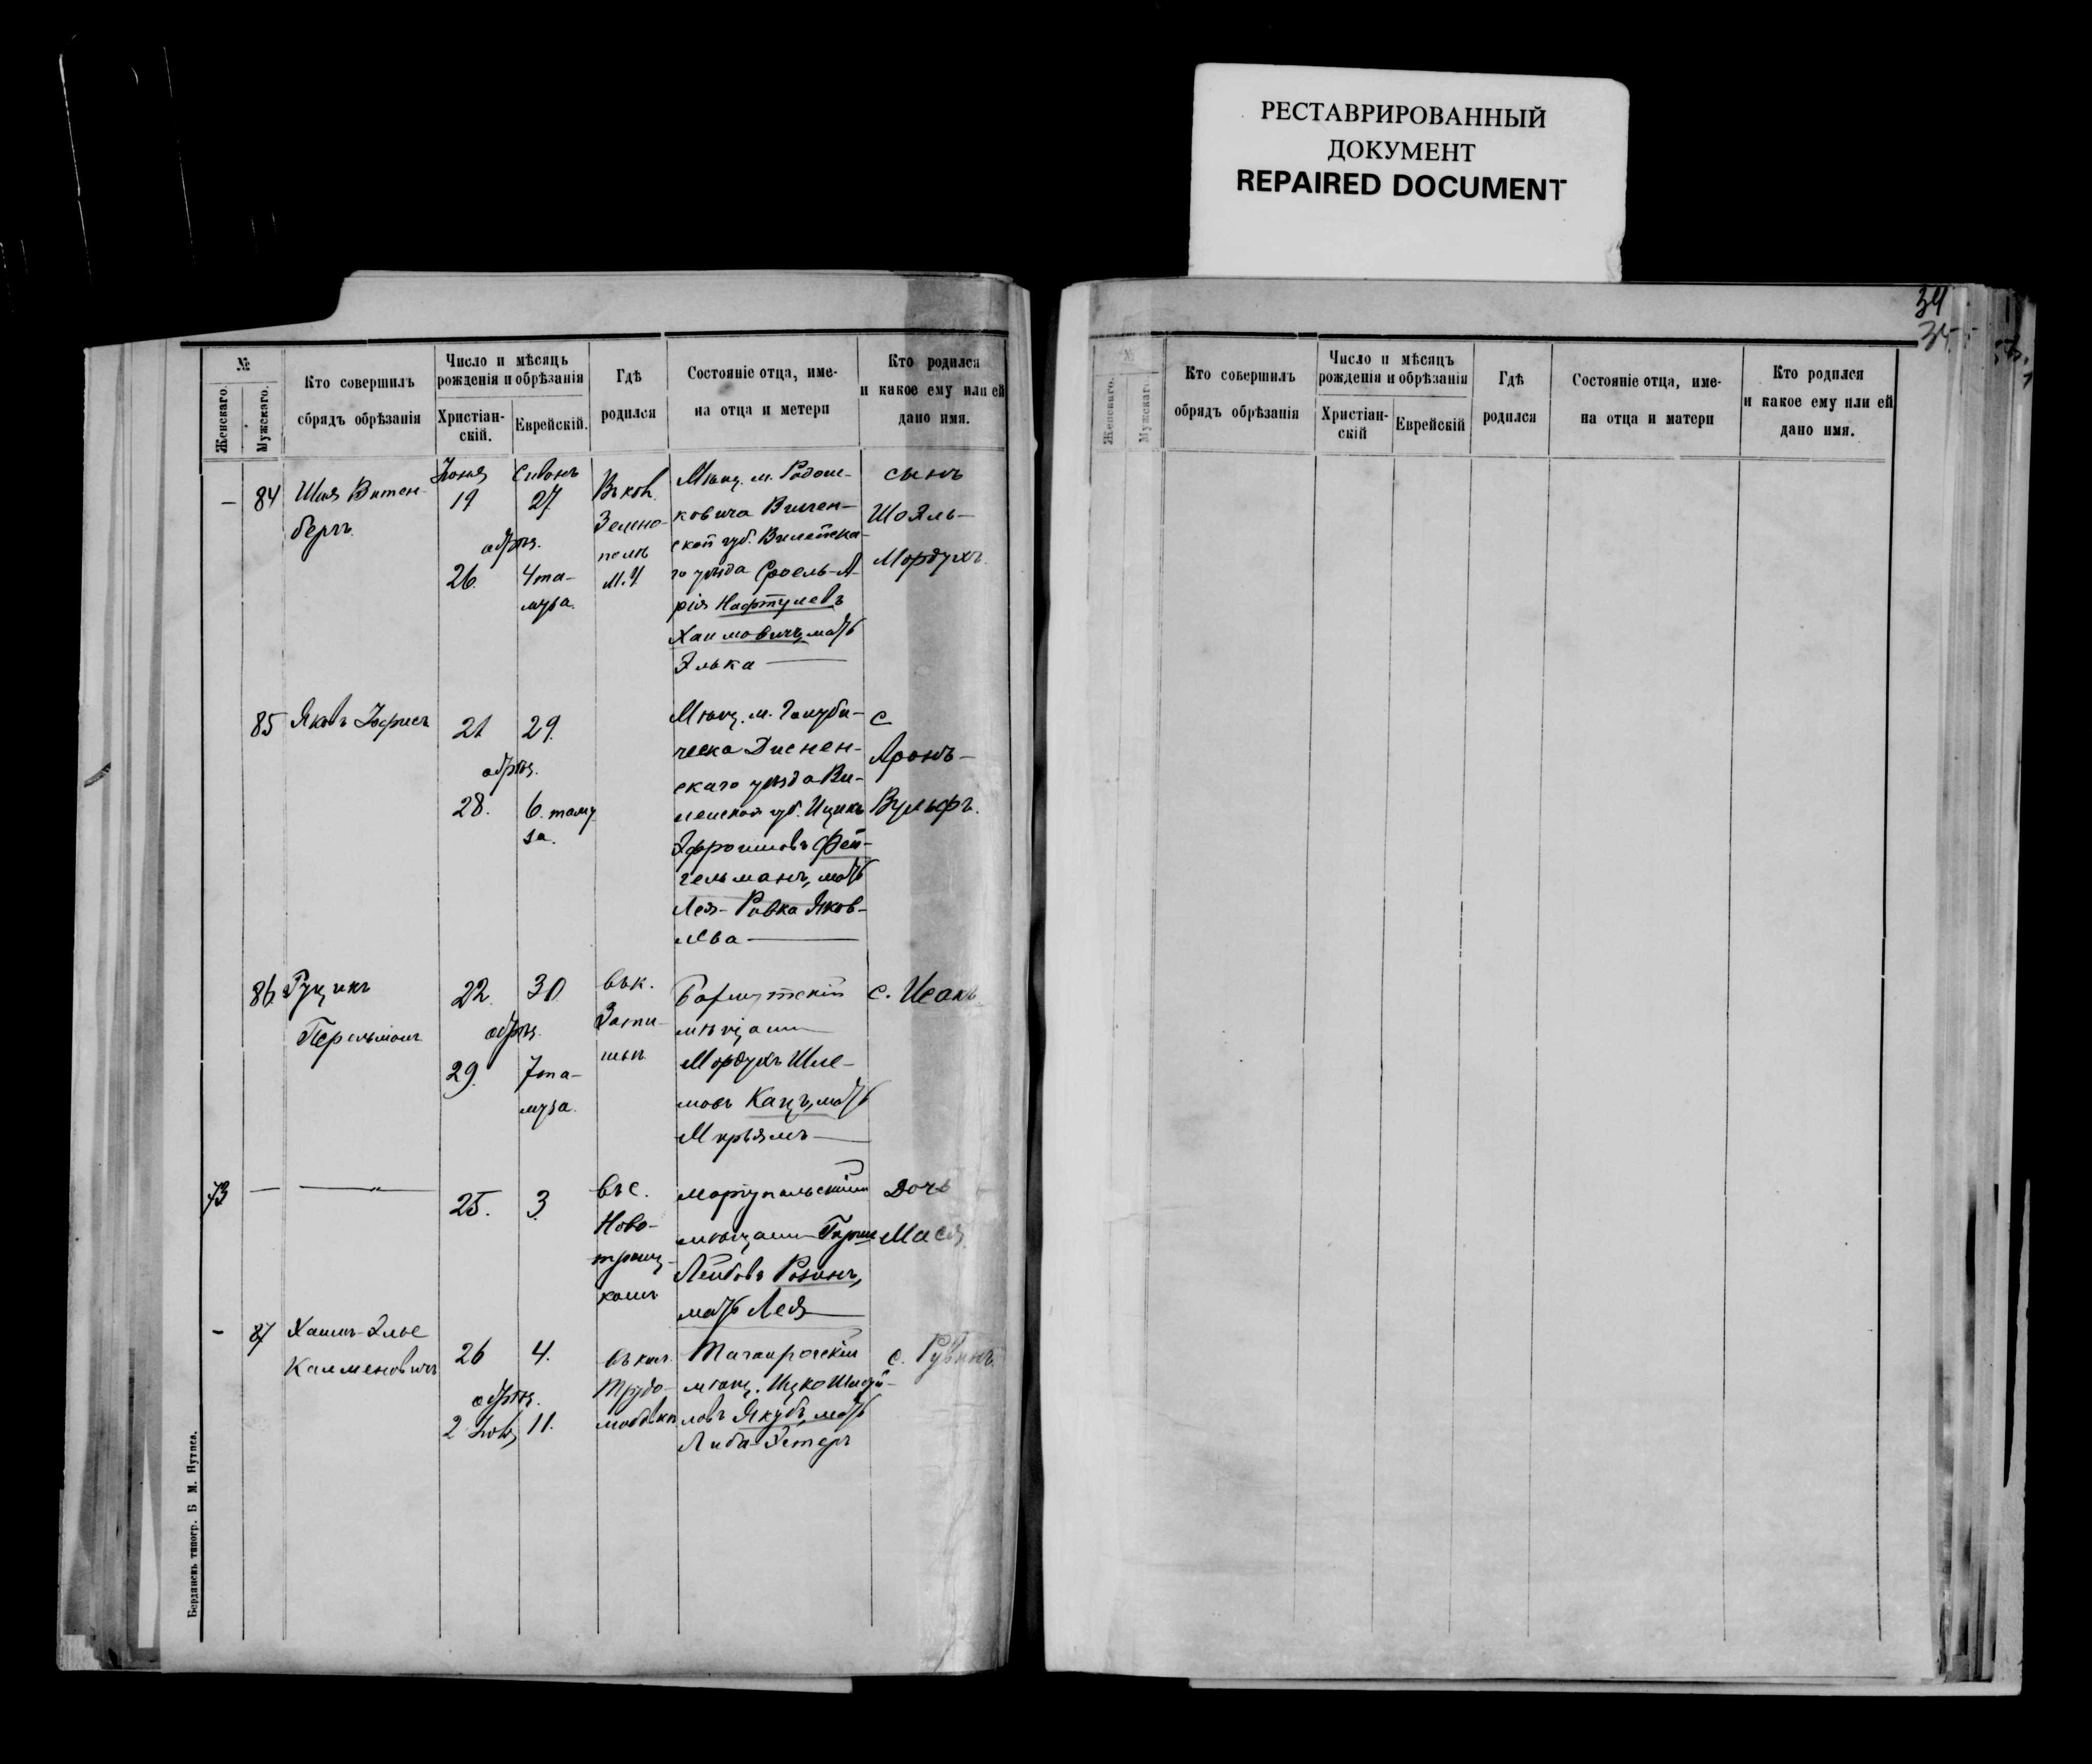 РЕСТАВРИРОВАННЫЙ
ДОКУМЕНТ
REPAIRED DOCUMENT
№
Женскаго.
Мужскаго.
Кто совершилъ
обрядъ обрѣзанія
Число и мѣсяцъ
рожденія и обрѣзанія
Христіан-
скій.
Еврейскій.
Гдѣ
родился
Состояніе отца, име-
на отца и метери
Кто родился
и какое ему или ей
дано имя.
— 84
Шая Витен-
бергъ
Іюня
19
обрѣз.
26.
Сивонъ
27
4 та-
муза.
Въ кол.
Зелено-
полѣ
М. У
Мѣщ. м. Радош-
ковича Вилен-
ской губ. Вилейска-
го уѣзда Сроель-А-
рія Нафтулевъ
Хаимовичъ, мать
Элька —
сынъ
Шоэль-
Мордухъ.
85
Яковъ Іофисъ
21
обрѣз.
28.
29.
6. таму
за.
Мѣщ. м. Голуби-
ческа Диснен-
скаго уѣзда Ви-
ленской губ. Ицикъ
Эфроимовъ Фей-
гельманъ, мать
Лея-Ривка Яков-
лева —
с
Аронъ-
Вульфъ.
86.
Гуцикъ
Перельманъ
22.
обрѣз.
29.
30
7 та-
муза.
въ к.
Зати-
шьѣ
Бахмутскій
мѣщанин
Мордухъ Шле-
мовъ Кацъ, мать
Мирьямъ —
с. Исакъ
73 — — " —
25.
3.
въ с.
Ново-
троиц-
комъ
Маріупольскій
мѣщанин Гирш
Лейбовъ Розинъ,
мать Лея
Дочь
Мася.
- 87
Хаимъ-Элье
Калменовичъ
26
обрѣз.
2 Іюля
4.
11.
въ кол.
Трудо-
любовкѣ
Таганрогскій
мѣщ. Ицко Шмуй-
ловъ Якубъ, мать
Либа-Эстеръ
с. Рувинъ.
Бердянскъ типогр. Б М. Нутиса.
34
35
№
Женскаго.
Мужскаго.
Кто совершилъ
обрядъ обрѣзанія
Число и мѣсяцъ
рожденія и обрѣзанія
Христіан-
скій
Еврейскій
Гдѣ
родился
Состояніе отца, име-
на отца и матери
Кто родился
и какое ему или ей
дано имя.